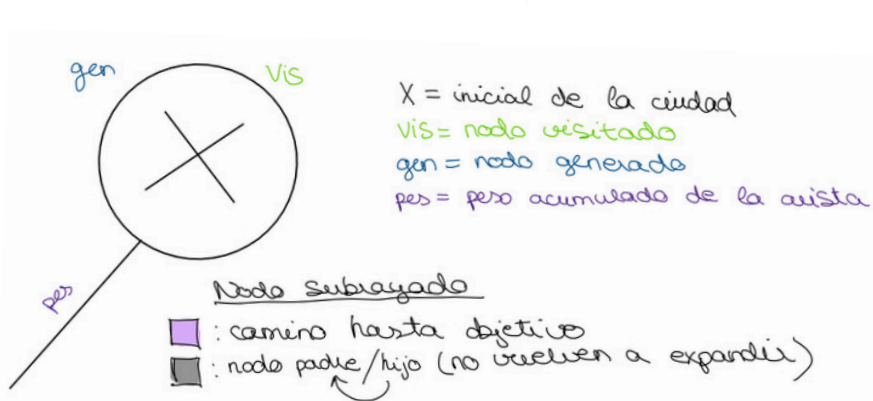 gen
vis
X
X = inicial de la ciudad
vis = nodo visitado
gen = nodo generado
pes = peso acumulado de la arista
pes
Nodo subrayado
: camino hasta objetivo
: nodo padre/hijo (no vuelven a expandir)